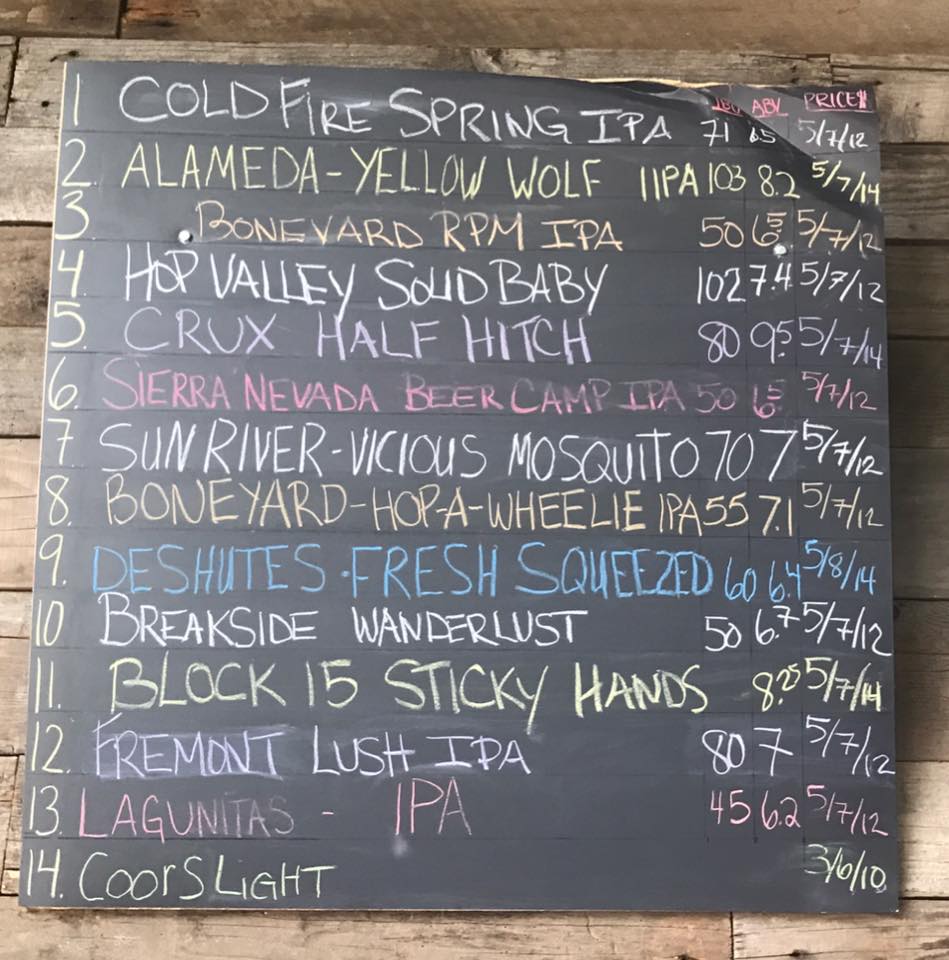 IBU ABV PRICE$
1 COLD FIRE SPRING IPA 71 6.5 5/7/12
2. ALAMEDA-YELLOW WOLF IIPA 103 8.2 5/7/14
3. BONEYARD RPM IPA 50 6.5 5/7/12
4 HOP VALLEY SOLID BABY 102 7.4 5/7/12
5. CRUX HALF HITCH 80 9.5 5/7/14
6. SIERRA NEVADA BEER CAMP IPA 50 6.5 5/7/12
7 SUNRIVER-VICIOUS MOSQUITO 70 7 5/7/12
8. BONEYARD-HOP-A-WHEELIE IPA 55 7.1 5/7/12
9. DESHUTES-FRESH SQUEEZED 60 6.4 5/8/14
10 BREAKSIDE WANDERLUST 50 6.7 5/7/12
11. BLOCK 15 STICKY HANDS 8.25 5/7/14
12. FREMONT LUSH IPA 80 7 5/7/12
13. LAGUNITAS - IPA 45 6.2 5/7/12
14. COORS LIGHT 3/6/10